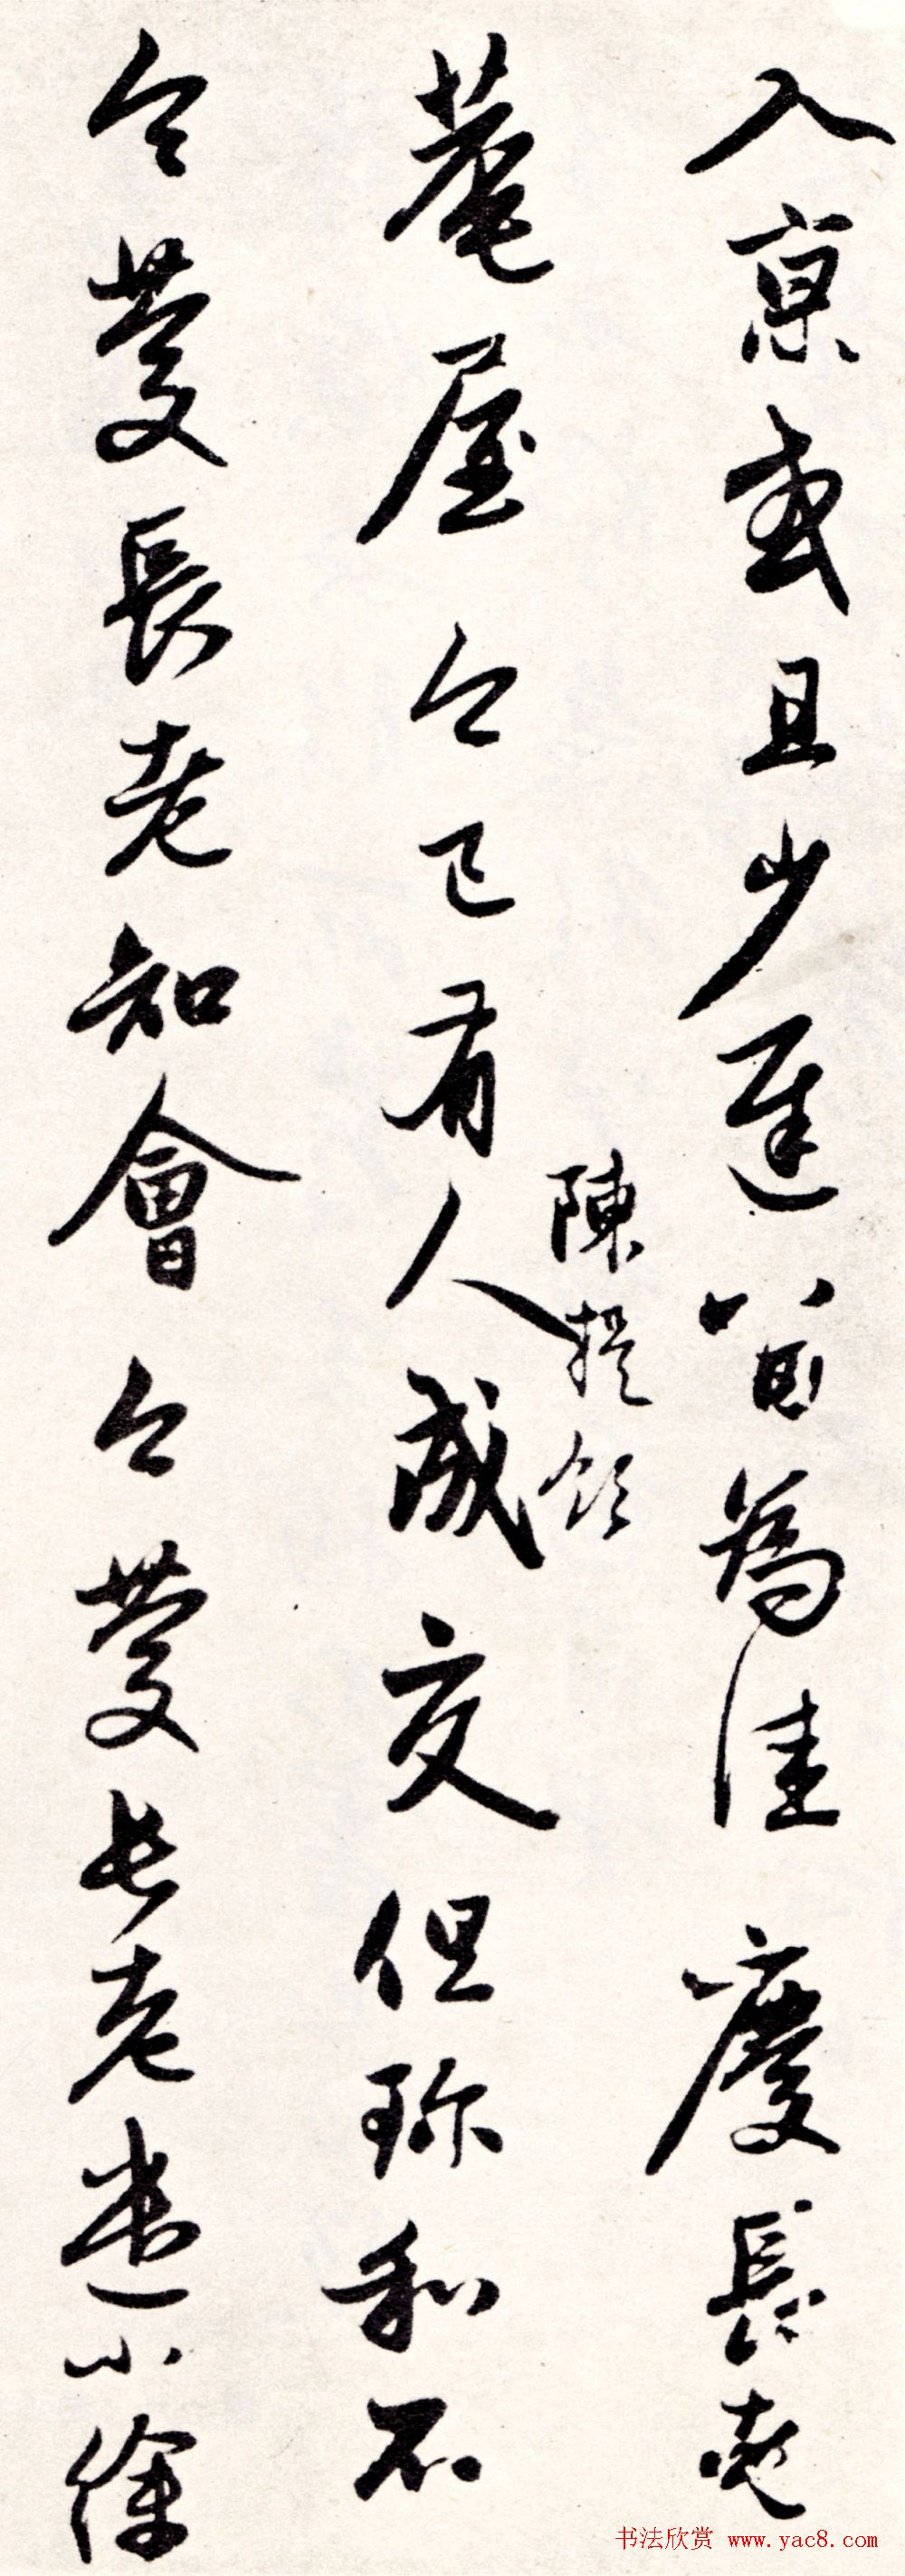 入京或且少遲留為佳慶長老
菴屋今已有人成交但珎和不
陳提領
今慶長老知會今慶長老遣小徐
书法欣赏 www.yac8.com